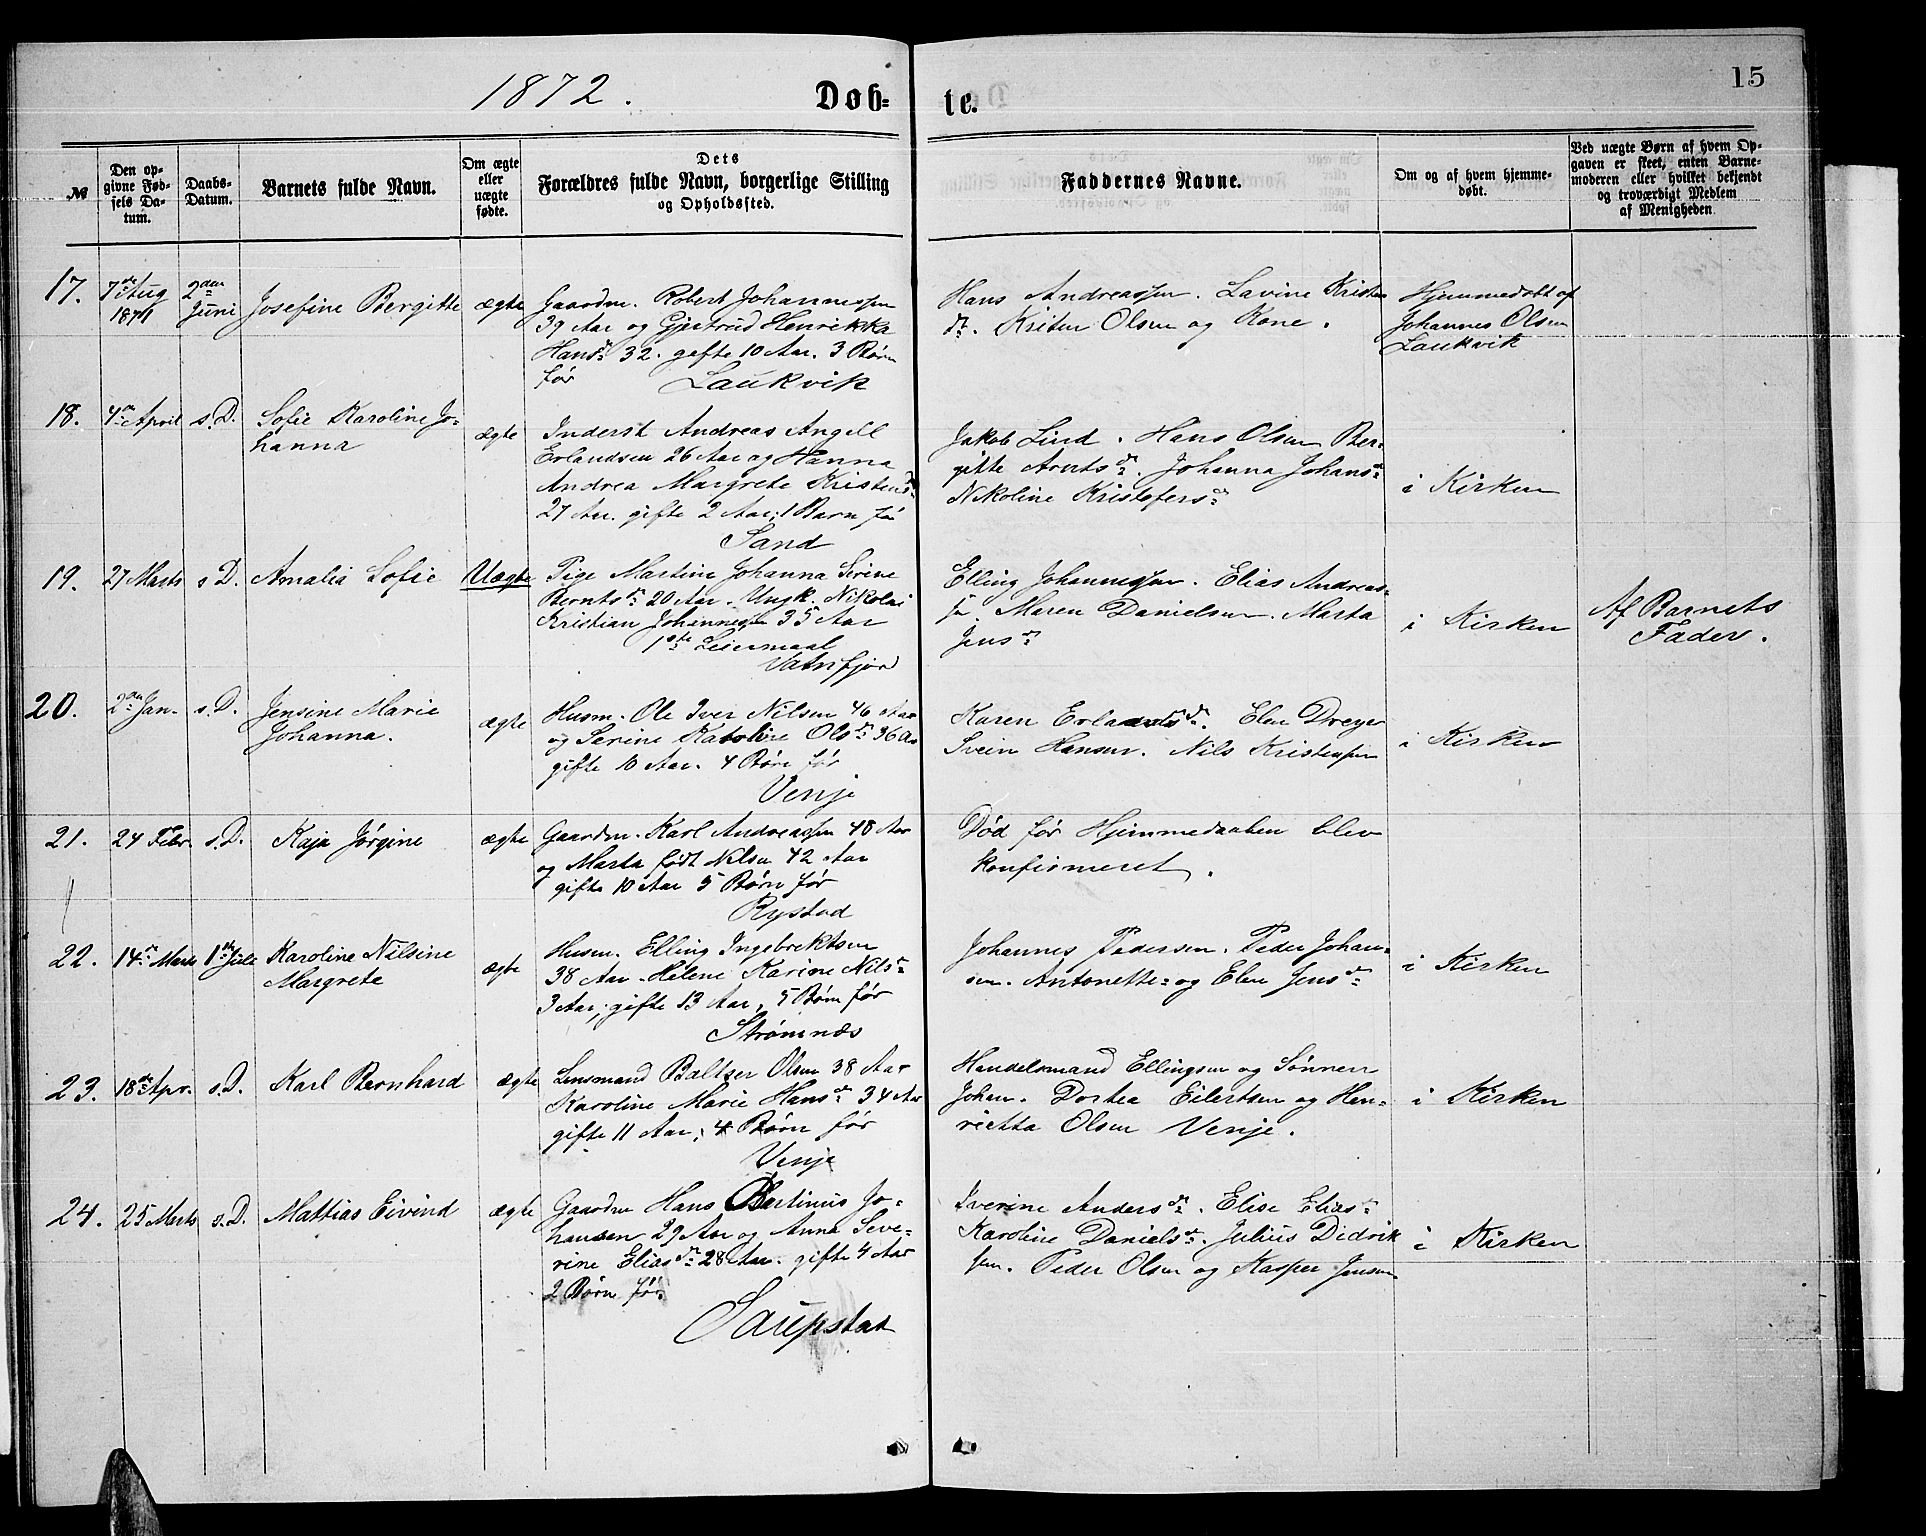 1872.
Døb-
te.
15
№
Den op-
givne Fød-
sels Da-
tum.
Daabs-
Datum.
Barnets fulde Navn.
Om ægte
eller
uægte
fødte.
Dets
Forældres fulde Navn, borgerlige Stilling
og Opholdssted.
Faddernes Navne.
Om og af hvem hjemme-
døbt.
Ved uægte Børn af hvem Op-
gaven er skeet, enten Barne-
moderen eller hvilket bekjendt
og troværdigt Medlem
af Menigheden.
17.
7de Aug
1871
2den
Juni
Josefine Bergitte
ægte
Gaardm. Robert Johannessen
39 Aar og Gjertrud Henrikka
Hansdr 32. gifte 10 Aar. 3 Børn
før
Laukvik
Hans Andreassen. Lavine Kristen
dr. Kristen Olsen og Kone.
Hjemmedøbt af
Johannes Olsen
Laukvik
18.
4de April
s. D.
Sofie Karoline Jo-
hanna
ægte
Inderst Andreas Angell
Erlandsen 26 Aar og Hanna
Andrea Margrete Kristensdr
27 Aar. gifte 2 Aar; 1 Barn før
Sand
Jakob Lind. Hans Olsen Ber-
gitte Arntsdr. Johanna Johansdr
Nikoline Kristofersdr
i Kirken
19.
27 Marts
s D.
Amalia Sofie
Uægte
Pige Martine Johanna Serine
Berntsdr 20 Aar. Ungk. Nikolai
Kristian Johannessen 35 Aar
1ste Leiermaal
Vatnfjord
Elling Johannessen. Elias Andreas-
sen. Maren Danielsen. Marta
Jensdr
i Kirken
Af Barnets
Fader.
20.
2den Jan.
s. D.
Jensine Marie
Johanna.
ægte
Husm. Ole Iver Nilsen 46 Aar
og Serine Karoline Olsdr 36 Aar
gifte 10 Aar. 4 Børn før
Venje
Karen Erlandsdr. Elen Dreyer
Svein Hansen. Nils Kristensen
i Kirken
21.
24 Febr.
s. D.
Kaja Jørgine
ægte
Gaardm. Karl Andreassen 48 Aar
og Marta født Nilsen 42 Aar
gifte 10 Aar 5 Børn før
Rystad
Død før Hjemmedaaben blev
konfirmeret.
22.
14de Marts
1ste Juli
Karoline Nilsine
Margrete
ægte
Husm. Elling Ingebrektsen
38 Aar. Helene Karine Nilsdr
3 Aar; gifte 13 Aar, 5 Børn før
Strømnæs
Johannes Pedersen. Peder Johan-
sen. Antonette- og Elen Jensdr
i Kirken
23.
18de Apr.
s. D.
Karl Bernhard
ægte
Lensmand Baltser Olsen 38 Aar
Karoline Marie Hansdr 34 Aar
gifte 11 Aar; 4 Børn før
Venje
Handelsmand Ellingsen og Sønnen
Johan. Dortea Eilertsen og Hen-
rietta Olsen Venje.
i Kirken
24.
25 Marts
s. D.
Mattias Eivind
ægte
Gaardm Hans Bertinus Jo-
hansen 29 Aar og Anna Seve-
rine Eliasdr 28 Aar. gifte 4 Aar
2 Børn før
Saupstad
Iverine Andersdr. Elise Eliasdr
Karoline Danielsdr. Julius Didrik
sen. Peder Olsen og Kasper Jensen
i Kirken